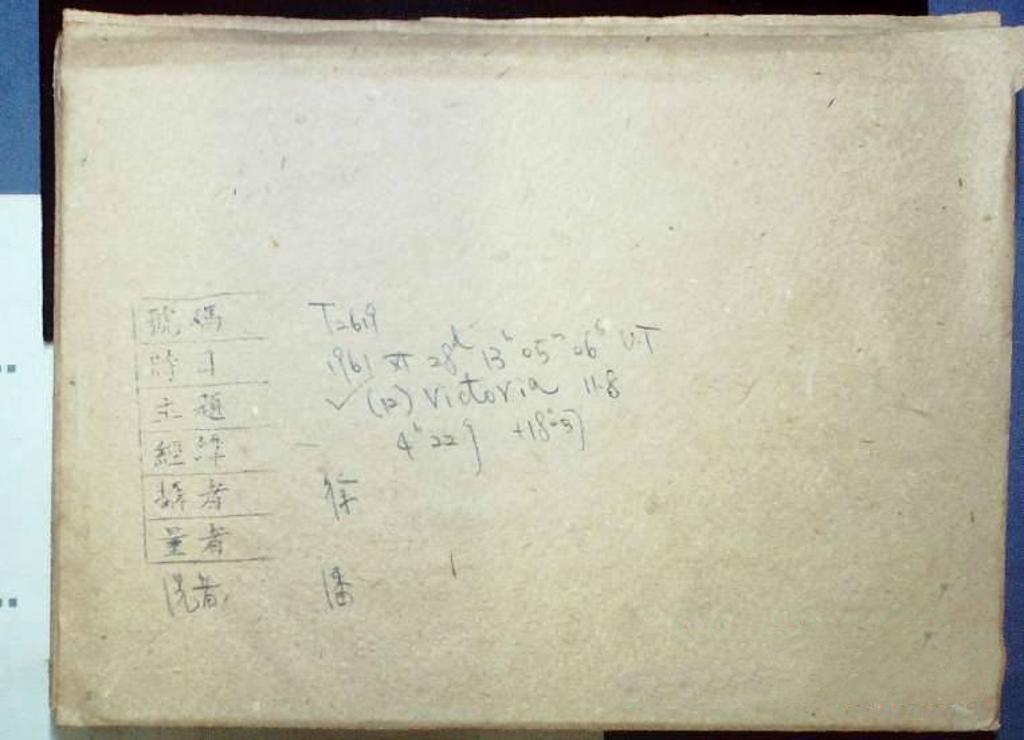 號碼 T2619
時下 1961 XI 28d 13h 05m 06s U.T
主題 ✓ (12) Victoria 11.8
經緯 4h 22 +18° 57
攝者 徐
量者
洗者 潘